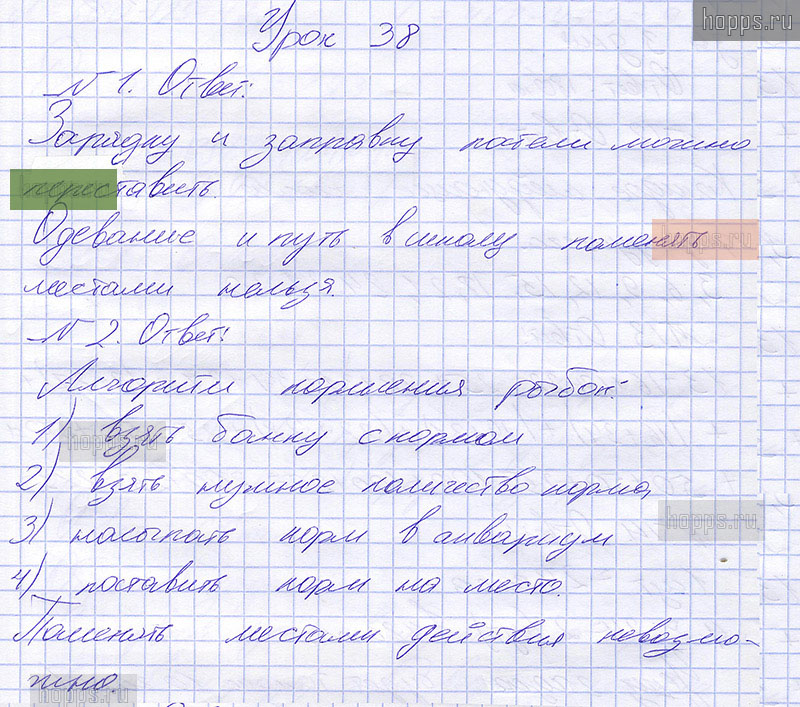 hopps.ru
Урок 38
N 1. Ответ:
Зарядку и заправку постели можно
переставить.
Одевание и путь в школу поменять
hopps.ru
местами нельзя.
N 2. Ответ:
Алгоритм кормления рыбок:
1) взять банку с кормом
hopps.ru
2) взять нужное количество корма,
3) насыпать корм в аквариум
hopps.ru
4) поставить корм на место.
Поменять местами действия невозмо-
жно.
hopps.ru